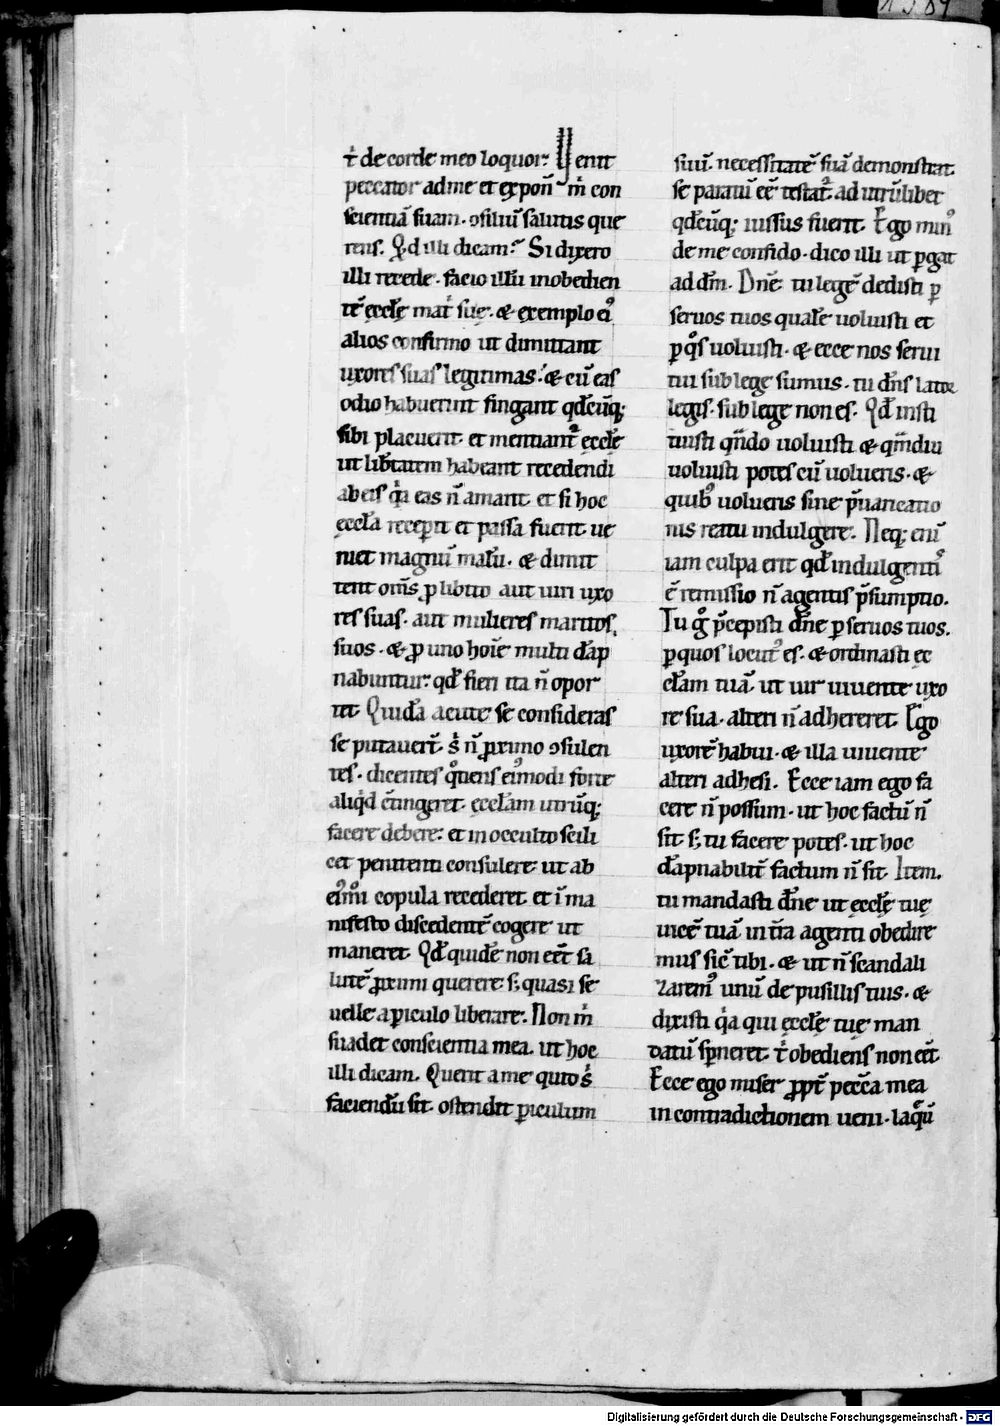 t̓ de corde meo loquor. Venit
peccator ad me et expon̄ m̓ con
scientiā suam. ꝯsiliū salutis que
rens. Qd̓ illi dicam? Si dixero
illi recede. facio illū inobedien
tē ęccłę mat̓ suę. & exemplo ei᾽
alios confirmo ut dimittant
uxores suas legitimas. & cū eas
odio habuerint fingant qd̄cūq;
sibi placuerit. et mentiant᷑ ęccłę
ut lib̄tatem habeant recedendi
ab eis q̓a eas n̄ amant. et si hoc
ęccła recep̱it et passa fuerit. ue
niet magnū malū. & dimit
tent om̄s ꝓ libito aut uiri uxo
res suas. aut mulieres maritos
suos. & ꝓ uno hoīe multi dāp
nabuntur. qd̄ fieri ita n̄ opor
tet. Quidā acute se consideras
se putauer̄t. s̓ n̄ ꝓximo ꝯsulen
tes. dicentes qͦniens ei᾽modi forte
aliq̓d c̄tingeret. ęccłam utrūq;
facere debere. et in occulto scili
cet penitenti consulere ut ab
ei᾽m̓i copula recederet. et ī ma
nifesto discedentē cogere ut
maneret. Qd̄ quidē non eēt sa
lutē ꝓximi querere s; quasi se
uelle a ꝑiculo liberare. Non m̓
suadet conscientia mea. ut hoc
illi dicam. Querit a me quid s̓
faciendū sit. ostendit ꝑiculum
suū. necessitatē suā demonstrat.
se paratū eē testat᷑. ad utrūlibet
qd̄cūq; iussus fuerit. Ego min᾽
de me confido. dico illi ut ꝑgat
ad dm̄. Dn̄e tu legē dedisti ꝑ
seruos tuos qualē uoluisti et
ꝑ q̓s uoluisti. & ecce nos serui
tui sub lege sumus. tu dn̄s lator
legis. sub lege non es. Qd̄ insti
tuisti qn̄do uoluisti & qm̄diu
uoluisti potes cū uolueris. &
quib᾽ uolueris sine p̄uaricatio
nis reatu indulgere. Neq; enī
iam culpa erit qd̄ indulgenti᾽
ē remissio n̄ agentis p̄sumptio.
Tu gͦ p̄cepisti dn̄e ꝑ seruos tuos.
ꝑ quos locut᾽ es. & ordinasti ęc
cłam tuā. ut uir uiuente uxo
re sua. alteri n̄ adhereret. Ego
uxorē habui. & illa uiuente
alteri adhesi. Ecce iam ego fa
cere n̄ possum. ut hoc factū n̄
sit s; tu facere potes. ut hoc
dāpnabilit᷑ factum n̄ sit. Item.
tu mandasti dn̄e ut ęccłę tuę
uicē tuā in t̄ra agenti obedire
mus sic̄ tibi. & ut n̄ scandali
zarem᾽ unū de pusillis tuis. &
dixisti q̓a qui ęccłę tuę man
datū sp̄neret. t̓ obediens non eēt.
Ecce ego miser ꝓpt᷑ pecc̄a mea
in contradictionem ueni. laq̓ū